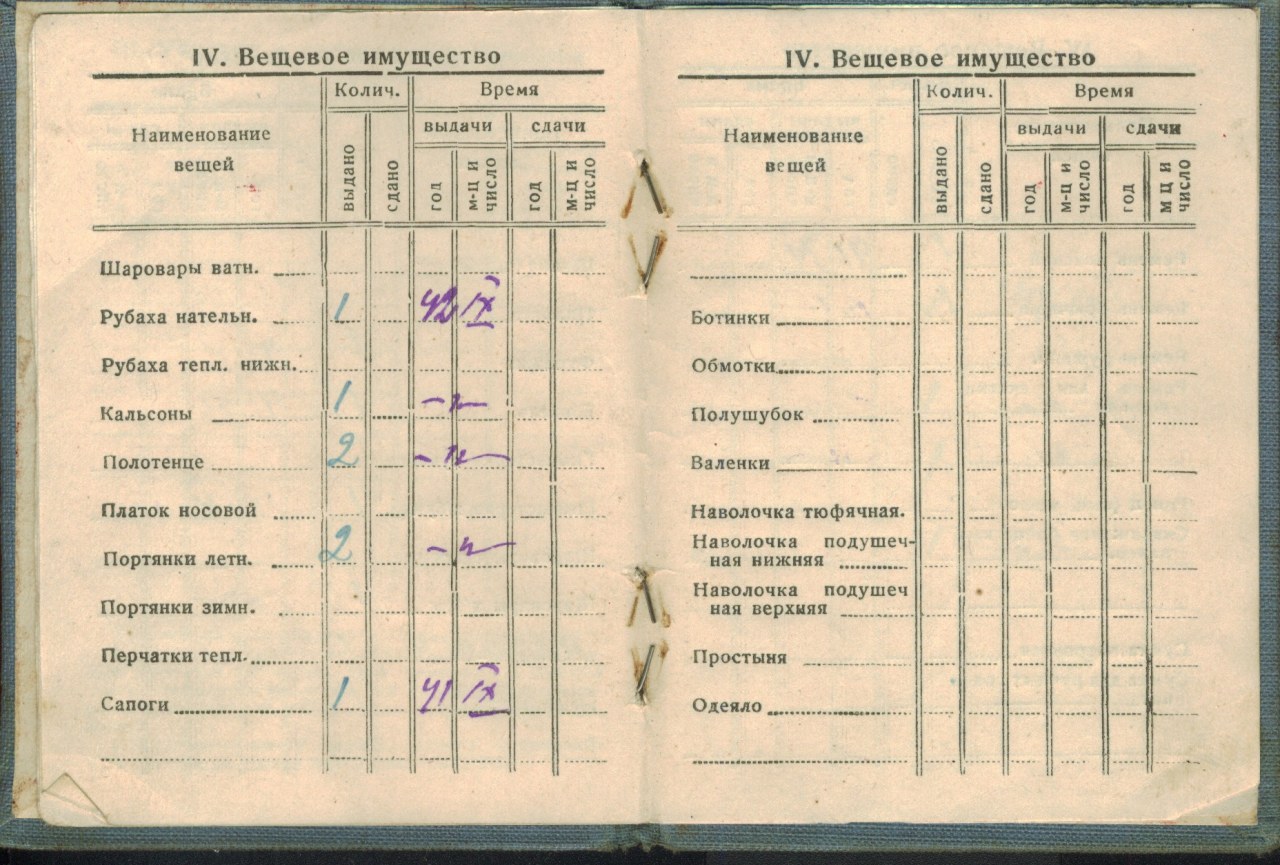 IV. Вещевое имущество
Колич. Время
Наименование вещей
выдачи сдачи
выдано сдано год м-ц и число год м-ц и число
Шаровары ватн.
Рубаха нательн. 1 42 IX
Рубаха тепл. нижн.
Кальсоны 1 -"-
Полотенце 2 -"-
Платок носовой
Портянки летн. 2 -"-
Портянки зимн.
Перчатки тепл.
Сапоги 1 41 IX
IV. Вещевое имущество
Колич. Время
Наименование вещей
выдачи сдачи
выдано сдано год м-ц и число год м ц и число
Ботинки
Обмотки
Полушубок
Валенки
Наволочка тюфячная.
Наволочка подушеч-
ная нижняя
Наволочка подушеч
ная верхняя
Простыня
Одеяло